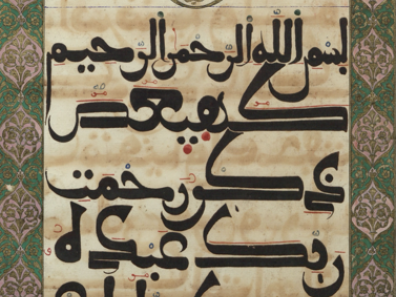 بسم الله الرحمن الرحيم
كهيعص
ذكر رحمت
ربك عبده